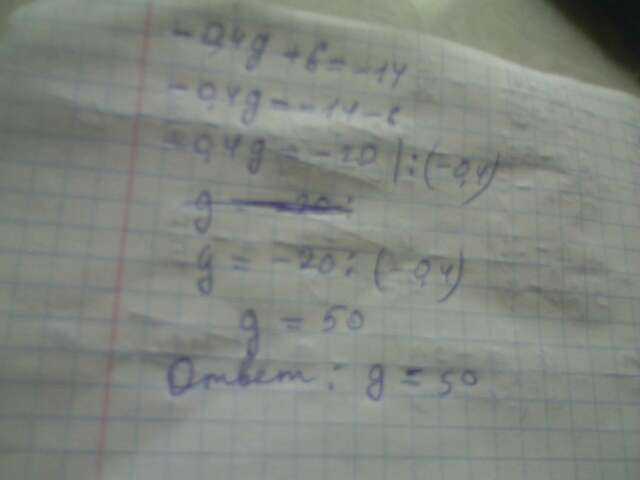 -0,4g + 6 = -14
-0,4g = -14-6
-0,4g = -20 |:(-0,4)
g = -20:
g = -20:(-0,4)
g = 50
Ответ: g = 50